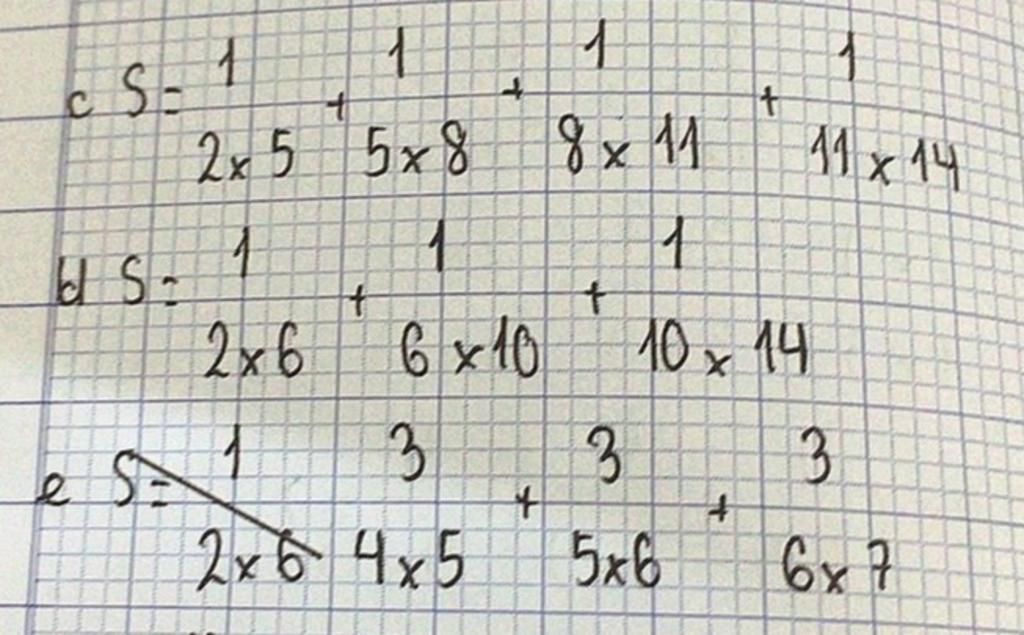 c S = 1/2x5 + 1/5x8 + 1/8x11 + 1/11x14
d S = 1/2x6 + 1/6x10 + 1/10x14
e S = 1/2x6 3/4x5 + 3/5x6 + 3/6x7